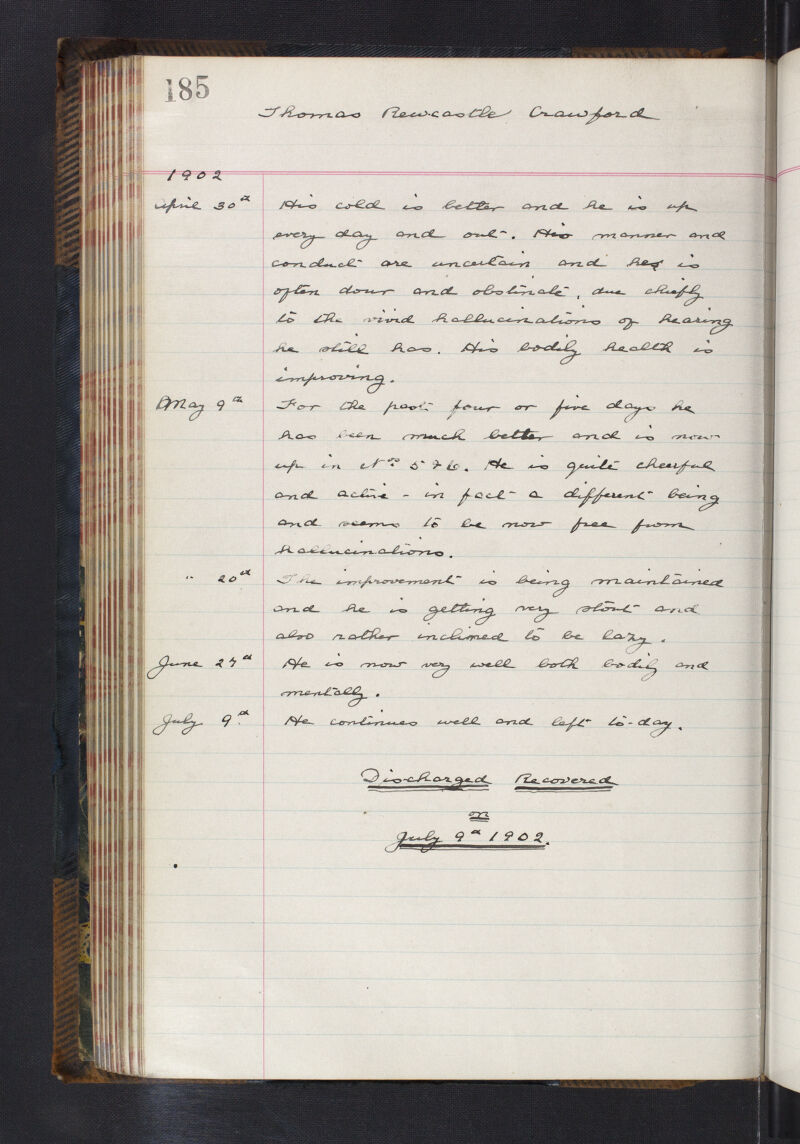 185
Thomas Rewcastle Crawford
1902
April 30th His cold is better and he is up
every day and out. His manner and
conduct are uncertain and he is
often dour and obstinate, due chiefly
to the vivid hallucinations of hearing
he still has. His bodily health is
improving.
May 9th For the past four or five days he
has been much better and is now
up in Nos 5 & 6. He is quite cheerful
and active - in fact a different being
and seems to be now free from
hallucinations.
" 20th The improvement is being maintained
and he is getting very stout and
also rather inclined to be lazy.
June 27th He is now very well both bodily and
mentally.
July 9th He continues well and left to-day.
Discharged Recovered
on
July 9th 1902.